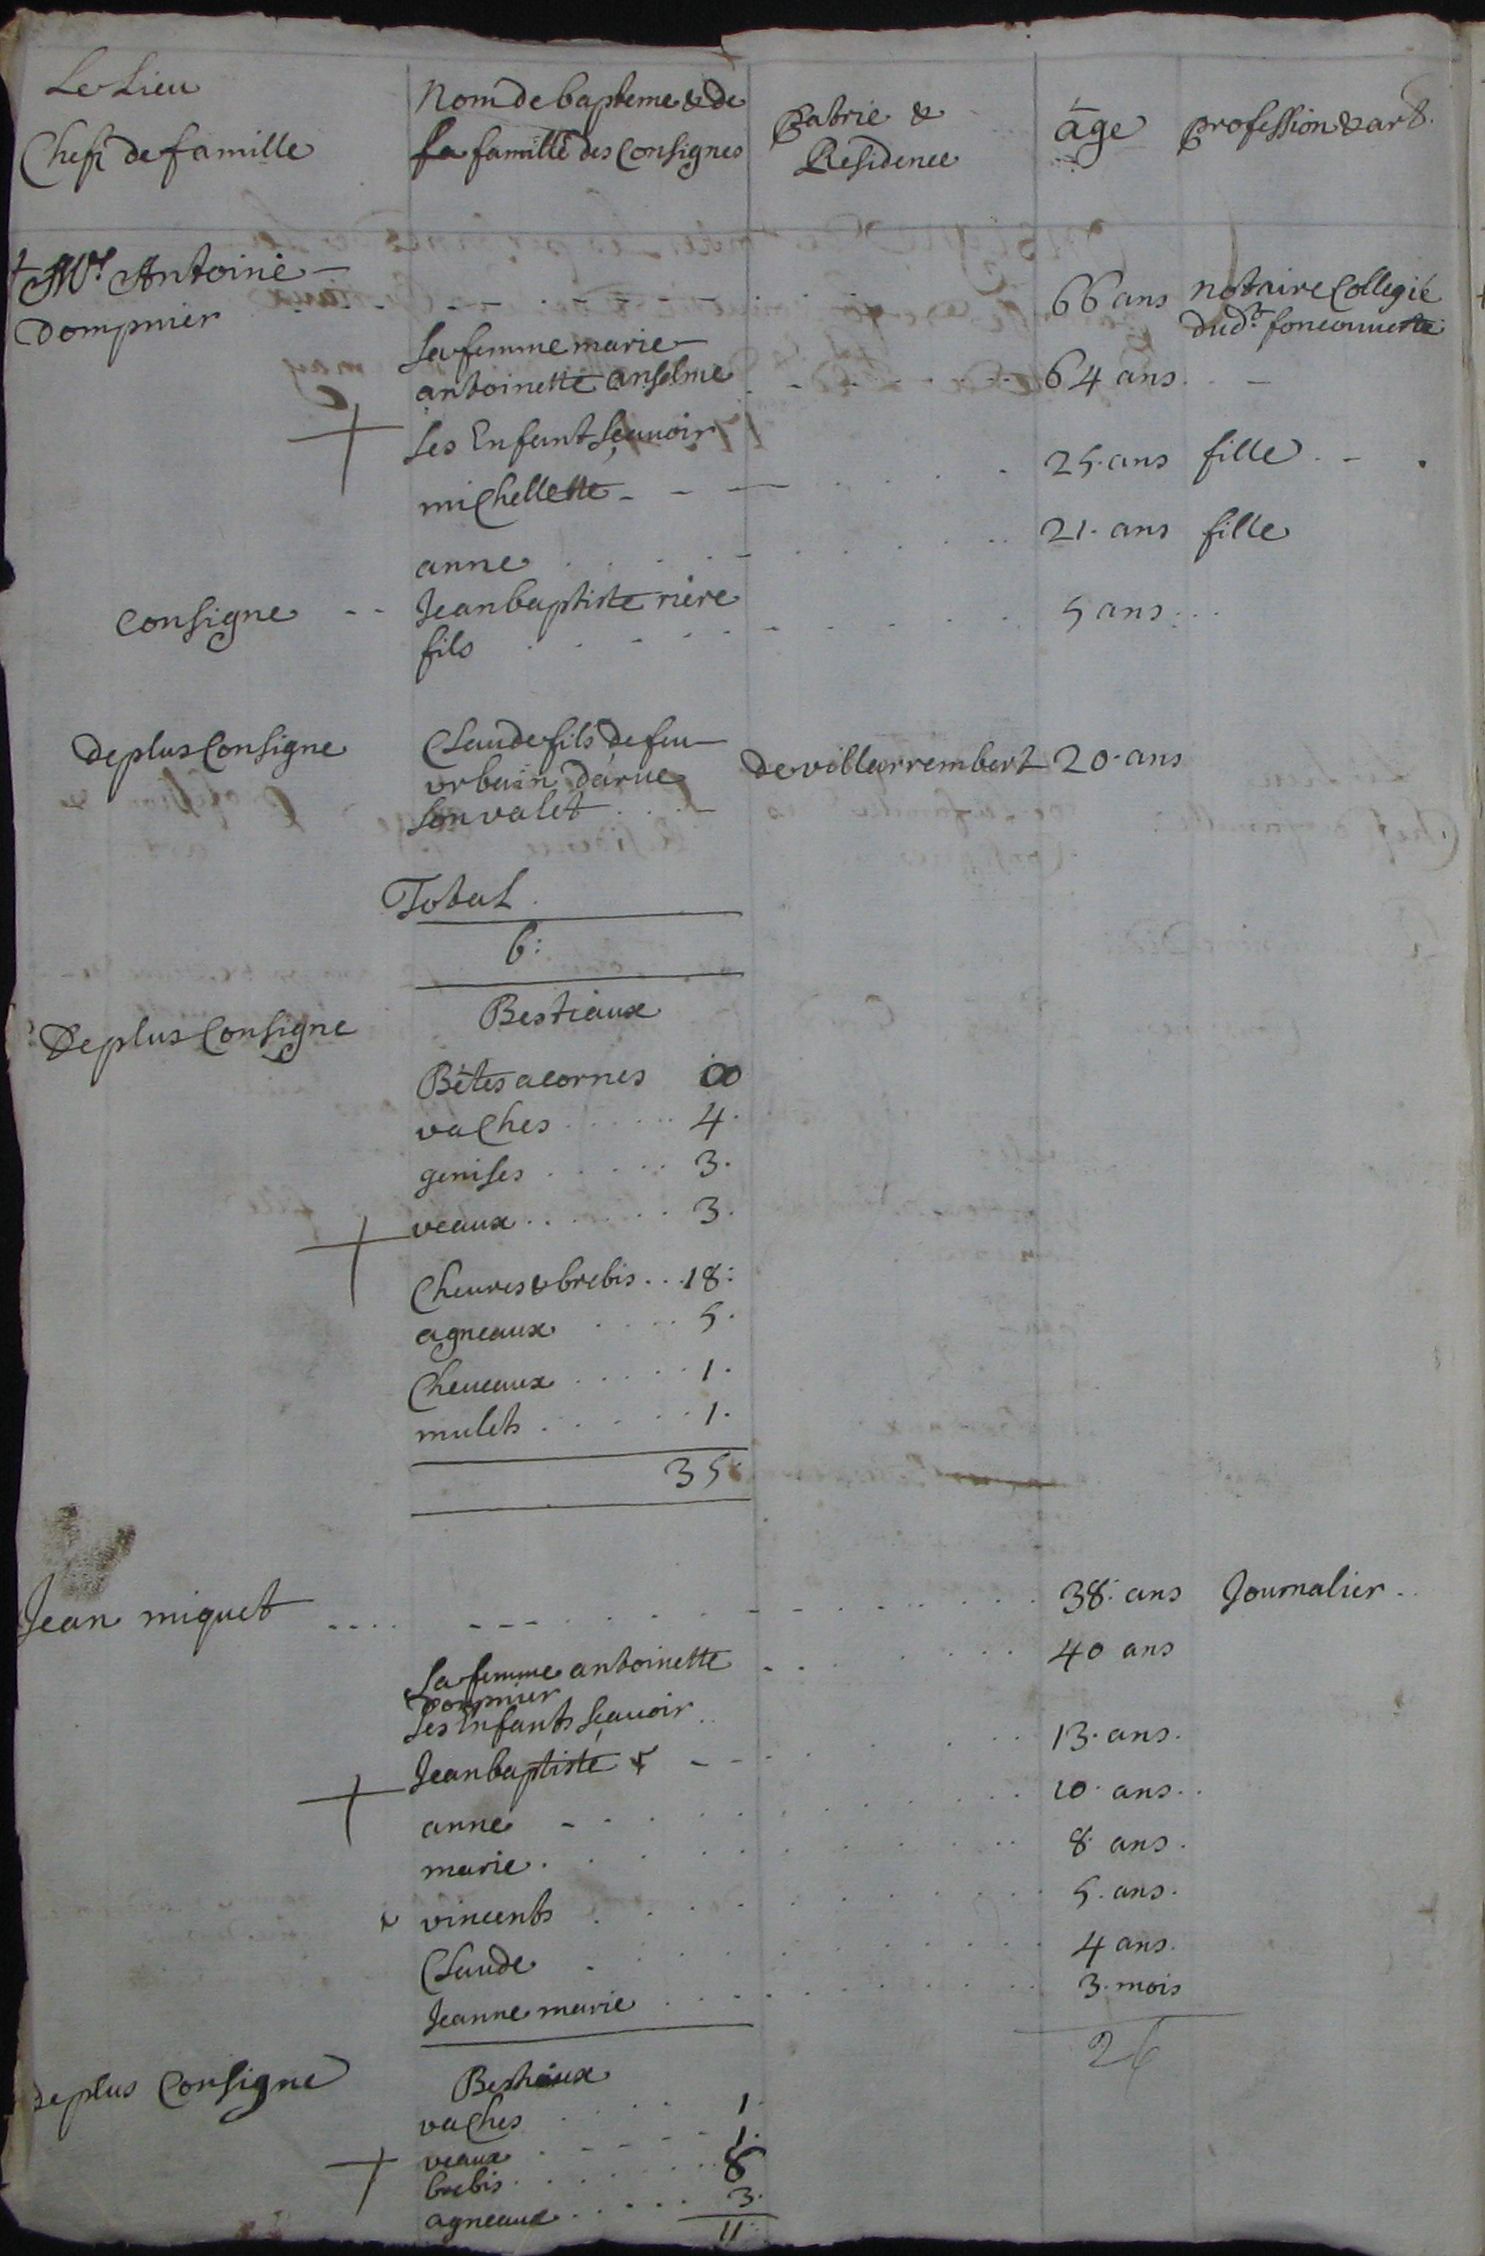 Le Lieu
Chefs de famille
Nom de bapteme & de
la famille des Consignes
Patrie &
Residence
âge
profession & art.
+ Mre Antoine
Dompnier
66 ans
notaire Collegié
dudt foncouuerte
Sa femme marie
antoinette anselme
64 ans
Ses Enfant Sçauoir
michellette
25. ans
fille
anne
21. ans
fille
Consigne
Jean baptiste rière
fils
5 ans
De plus Consigne
Claude fils de feu
urbain darue
Son valet
de villarrembert
20. ans
Total
6:
De plus Consigne
Bestiaux
Bêtes a cornes 00
vaches 4.
genises 3.
veaux 3.
Cheures & brebis 18:
agneaux 5.
Cheueaux 1.
mulets 1.
35:
Jean miquet
38. ans
Journalier
Sa femme antoinette
Dompnier
40 ans
Ses Enfants Sçauoir
Jean baptiste
13. ans.
anne
10. ans.
marie
8. ans.
vincents
5. ans.
Claude
4 ans.
Jeanne marie
3. mois
26
De plus Consigne
Bestiaux
vaches 1.
veaux 1.
brebis 8
agneaux 3.
11: